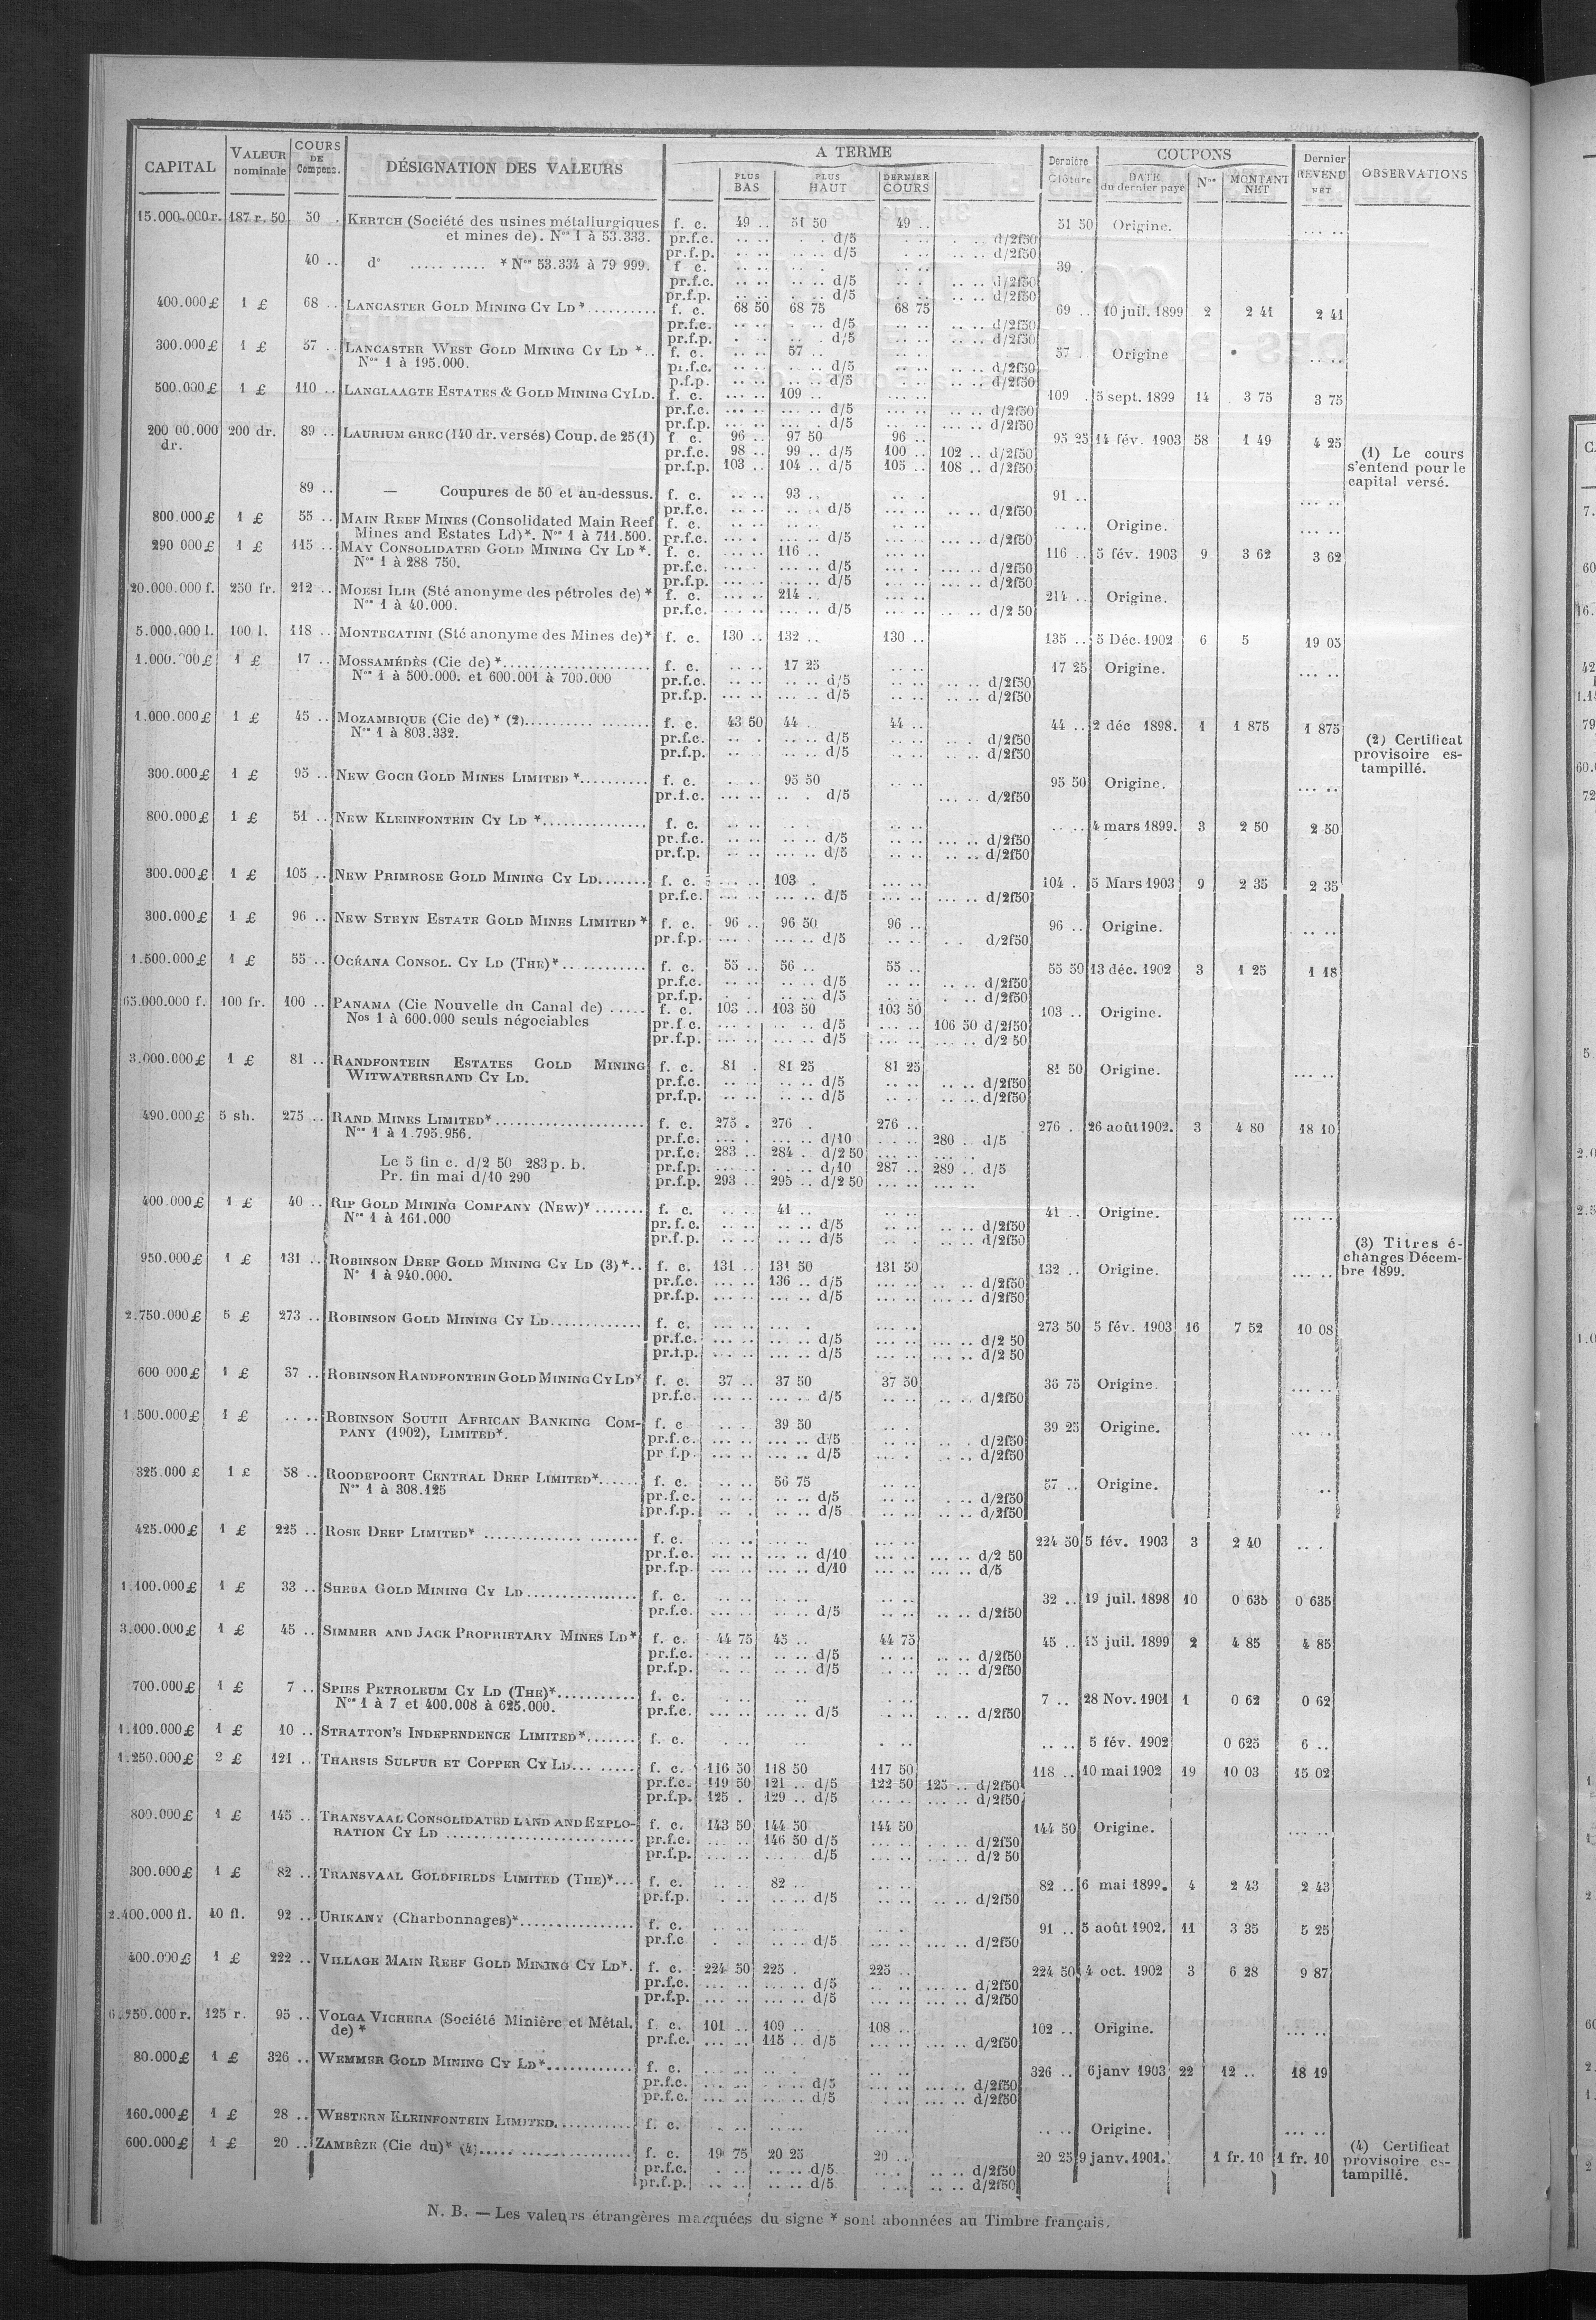 CAPITAL | VALEUR nominale | COURS DE Compens. | DÉSIGNATION DES VALEURS | A TERME | Dernière Clôture | COUPONS | Dernier REVENU NET | OBSERVATIONS
PLUS BAS | PLUS HAUT | DERNIER COURS | DATE du dernier payé | Nos | MONTANT NET
15.000.000 r. 187 r. 50 50 . KERTCH (Société des usines métallurgiques f. c. 49 .. 51 50 49 .. 51 50 Origine. .... ..
et mines de). Nos 1 à 53.333. pr.f.c. .. .. . . d/5 . .. . .. d/2f50
pr.f.p. .. .. .. .. d/5 .. .. .. .. d/2f50
40 .. do ..... ..... * Nos 53.334 à 79 999. f c. .. .. .. . .. .. 39 .
pr.f.c. .. .. .. .. d/5 .. . .. .. d/2f50
pr.f.p. .. .. .. .. d/5 . .. .. .. d/2f50
400.000 £ 1 £ 68 .. LANCASTER GOLD MINING CY LD * .......... f. c. 68 50 68 75 68 75 69 .. 10 juil. 1899 2 2 41 2 41
pr.f.c. .. .. .. .. d/5 .. .. .. .. d/2f50
pr.f.p. . . .. . d/5 .. .. .. .. d/2f50
300.000 £ 1 £ 57 .. LANCASTER WEST GOLD MINING CY LD *.. f. c. .. .. 57 .. .. .. 57 . Origine .. ..
Nos 1 à 195.000. pr.f.c. .. .. .. .. d/5 .. .. .. .. d/2f50
p.f.p. .. .. .. .. d/5 .. .. .. .. d/2f50
500.000 £ 1 £ 110 .. LANGLAAGTE ESTATES & GOLD MINING CY LD. f. c. ... .. 109 .. ... .. 109 . 5 sept. 1899 14 3 75 3 75
pr.f.c. ... .. ... .. d/5 ... .. .. .. d/2f50
pr.f.p. ... .. ... . d/5 ... .. .. .. d/2f50
200 00.000 dr. 200 dr. 89 .. LAURIUM GREC (140 dr. versés) Coup. de 25 (1) f c. 96 .. 97 50 96 .. 95 25 14 fév. 1903 58 1 49 4 25
pr.f.c. 98 .. 99 .. d/5 100 .. 102 .. d/2f50 (1) Le cours
pr.f.p. 103 .. 104 .. d/5 105 .. 108 .. d/2f50 s'entend pour le
capital versé.
89 .. — Coupures de 50 et au-dessus. f. c. .. .. 93 .. .. . 91 .. ... ..
pr.f.c. .. .. .. .. d/5 .. .. .. .. d/2f50
800.000 £ 1 £ 55 .. MAIN REEF MINES (Consolidated Main Reef f. c. .. .. .. .. .. .. .. .. Origine. ... ..
Mines and Estates Ld)*. Nos 1 à 711.500. pr.f.c. .. .. ... .. d/5 .. .. .. .. d/2f50
290 000 £ 1 £ 115 .. MAY CONSOLIDATED GOLD MINING CY LD *. f. c. ... .. 116 .. ... .. 116 .. 5 fév. 1903 9 3 62 3 62
Nos 1 à 288 750. pr.f.c. ... .. ... .. d/5 ... .. .. .. d/2f50
pr.f.p. ... .. ... .. d/5 ... .. .. .. d/2f50
20.000.000 f. 250 fr. 212 .. MORSI ILIR (Sté anonyme des pétroles de) * f. c. ... .. 214 . ... .. 214 .. Origine.
Nos 1 à 40.000. pr.f.c. ... .. ... .. d/5 ... .. ... .. d/2 50
5.000.000 l. 100 l. 118 .. MONTECATINI (Sté anonyme des Mines de)* f. c. 130 .. 132 .. 130 .. 135 .. 5 Déc. 1902 6 5 19 05
1.000.000 £ 1 £ 17 .. MOSSAMÉDÈS (Cie de) *...................... f. c. .. .. 17 25 .. .. 17 25 Origine. ... ..
Nos 1 à 500.000. et 600.001 à 700.000 pr.f.c. .. .. .. .. d/5 .. .. .. .. d/2f50
pr.f.p. ... .. ... .. d/5 ... .. ... .. d/2f50
1.000.000 £ 1 £ 45 .. MOZAMBIQUE (Cie de) * (2).......... ........ f. c. 43 50 44 .. 44 .. 44 .. 2 déc 1898. 1 1 875 1 875
Nos 1 à 803.332. pr.f.c. .. . .. .. d/5 .. .. .. . d/2f50 (2) Certificat
pr.f.p. .. .. .. .. d/5 .. .. .. .. d/2f50 provisoire es-
tampillé.
300.000 £ 1 £ 95 .. NEW GOCH GOLD MINES LIMITED *.......... f. c. . . 95 50 .. .. 95 50 Origine. ... ..
pr.f.c. ... .. .. . d/5 ... .. d/2f50
800.000 £ 1 £ 51 .. NEW KLEINFONTEIN CY LD *............... f. c. .. .. .. . .. .. .. .. 4 mars 1899. 3 2 50 2 50
pr.f.c. .. .. .. .. d/5 .. .. ... .. d/2f50
pr.f.p. .. .. ... .. d/5 .. .. .. .. d/2f50
300.000 £ 1 £ 105 .. NEW PRIMROSE GOLD MINING CY LD....... f. c. ... .. 103 . ... .. 104 . 5 Mars 1903 9 2 35 2 35
pr.f.c. ... .. ... .. d/5 ... .. ... .. d/2f50
300.000 £ 1 £ 96 .. NEW STEYN ESTATE GOLD MINES LIMITED * f. c. 96 .. 96 50 96 .. 96 .. Origine. .. ..
pr.f.p. ... . ... .. d/5 .. .. . . d/2f50
1.500.000 £ 1 £ 55 .. OCÉANA CONSOL. CY LD (THE)*............ f. c. 55 .. 56 .. 55 .. 55 50 13 déc. 1902 3 1 25 1 18
pr.f.c. .. .. .. .. d/5 .. .. .. .. d/2f50
pr.f.p. . . .. .. d/5 .. .. . .. d/2f50
65.000.000 f. 100 fr. 100 .. PANAMA (Cie Nouvelle du Canal de) ..... f. c. 103 .. 103 50 103 50 103 .. Origine.
Nos 1 à 600.000 seuls négociables pr.f.c. ... . .. .. d/5 ... .. 106 50 d/2f50
pr.f.p. ... .. ... .. d/5 ... .. ... .. d/2 50
3.000.000 £ 1 £ 81 .. RANDFONTEIN ESTATES GOLD MINING f. c. 81 . 81 25 81 25 81 50 Origine. ... ..
WITWATERSRAND CY LD. pr.f.c. .. .. .. .. d/5 .. .. .. .. d/2f50
pr.f.p. .. .. .. .. d/5 .. .. .. .. d/2f50
490.000 £ 5 sh. 275 .. RAND MINES LIMITED*..................... f. c. 275 . 276 . 276 .. 276 . 26 août 1902. 3 4 80 18 10
Nos 1 à 1.795.956. pr.f.c. ... . ... .. d/10 ... .. 280 .. d/5
pr.f.c. 283 .. 284 . d/2 50 ... .. ... .
Le 5 fin c. d/2 50 283 p. b. pr.f.p. ... .. . .. d/10 287 .. 289 .. d/5
Pr. fin mai d/10 290 pr.f.p. 293 .. 295 .. d/2 50 ... .. ... ..
400.000 £ 1 £ 40 .. RIP GOLD MINING COMPANY (NEW)* ....... f. c. .. . 41 .. .. .. 41 .. Origine. ... ..
Nos 1 à 161.000 pr.f.c. .. .. .. .. d/5 .. .. .. .. d/2f50
pr.f.p. .. .. .. .. d/5 .. . .. .. d/2f50
950.000 £ 1 £ 131 .. ROBINSON DEEP GOLD MINING CY LD (3)*.. f. c. 131 .. 131 50 131 50 132 .. Origine. ... .. (3) Titres é-
No 1 à 940.000. pr.f.c. ... .. 136 .. d/5 ... .. .. .. d/2f50 changés Décem-
pr.f.p. ... .. ... .. d/5 ... .. .. .. d/2f50 bre 1899.
2.750.000 £ 5 £ 273 .. ROBINSON GOLD MINING CY LD............. f. c. ... .. ... . ... .. 273 50 5 fév. 1903 16 7 52 10 08
pr.f.c. ... .. ... .. d/5 ... .. ... .. d/2 50
pr.f.p. ... .. ... .. d/5 ... .. ... .. d/2 50
600 000 £ 1 £ 37 .. ROBINSON RANDFONTEIN GOLD MINING CY LD* f. c. 37 .. 37 50 37 50 36 75 Origine. ... ..
pr.f.c. ... .. ... .. d/5 .. .. .. .. d/2f50
1.500.000 £ 1 £ .. .. ROBINSON SOUTH AFRICAN BANKING COM- f. c .. . 39 50 .. . 39 25 Origine. ... ..
PANY (1902), LIMITED*. pr.f.c. ... .. ... .. d/5 .. .. .. . d/2f50
pr f.p. ... .. ... .. d/5 .. .. .. .. d/2f50
325.000 £ 1 £ 58 .. ROODEPOORT CENTRAL DEEP LIMITED*...... f. c. .. . 56 75 .. .. 57 .. Origine. ..
Nos 1 à 308.125 pr.f.c. .. .. .. .. d/5 .. .. . .. d/2f50
pr.f.p. .. .. .. .. d/5 .. .. .. .. d/2f50
425.000 £ 1 £ 225 .. ROSE DEEP LIMITED* .................... f. c. ... .. ... .. ... .. 224 50 5 fév. 1903 3 2 40 .. .
pr.f.c. ... .. ... .. d/10 ... .. ... .. d/2 50
pr.f.p. ... .. ... .. d/10 ... .. ... .. d/5
1.100.000 £ 1 £ 33 .. SHEBA GOLD MINING CY LD ................ f. c. .. .. .. .. .. .. 32 .. 19 juil. 1898 10 0 635 0 635
pr.f.c. ... .. ... .. d/5 .. .. .. .. d/2f50
3.000.000 £ 1 £ 45 .. SIMMER AND JACK PROPRIETARY MINES LD* f. c. 44 75 45 .. 44 75 45 .. 15 juil. 1899 2 4 85 4 85
pr.f.c. .. .. .. .. d/5 .. .. .. .. d/2f50
pr.f.p. .. .. .. .. d/5 .. .. .. .. d/2f50
700.000 £ 1 £ 7 .. SPIES PETROLEUM CY LD (THE)*........... f. c. .. .. .. .. .. .. 7 .. 28 Nov. 1901 1 0 62 0 62
Nos 1 à 7 et 400.008 à 625.000. pr.f.c. .. .. ... .. d/5 . .. .. .. d/2f50
1.100.000 £ 1 £ 10 .. STRATTON'S INDEPENDENCE LIMITED*....... f. c. . .. .. .. . .. .. .. 5 fév. 1902 0 625 6 ..
1.250.000 £ 2 £ 121 .. THARSIS SULFUR ET COPPER CY LD... ..... f. c. 116 50 118 50 117 50 118 .. 10 mai 1902 19 10 03 15 02
pr.f.c. 119 50 121 .. d/5 122 50 125 .. d/2f50
pr.f.p. 125 . 129 .. d/5 ... .. ... .. d/2f50
800.000 £ 1 £ 145 .. TRANSVAAL CONSOLIDATED LAND AND EXPLO- f. c. 143 50 144 50 144 50 144 50 Origine. ... ..
RATION CY LD ........................... pr.f.c. ... .. 146 50 d/5 ... .. . .. .. d/2f50
pr.f.p. ... .. ... .. d/5 ... .. ... .. d/2 50
300.000 £ 1 £ 82 .. TRANSVAAL GOLDFIELDS LIMITED (THE)*... f. c. .. . 82 .. .. .. 82 .. 6 mai 1899. 4 2 43 2 43
pr.f.p. . .. ... .. d/5 .. .. .. .. d/2f50
2.400.000 fl. 40 fl. 92 .. URIKANY (Charbonnages)*................ f. c. .. .. .. .. .. .. 91 .. 5 août 1902. 11 3 35 5 25
pr.f.c . .. .. .. d/5 ... .. ... .. d/2f50
400.000 £ 1 £ 222 .. VILLAGE MAIN REEF GOLD MINING CY LD*. f. c. 224 50 225 . 225 .. 224 50 4 oct. 1902 3 6 28 9 87
pr.f.c. ... .. ... .. d/5 ... .. ... .. d/2f50
pr.f.p. ... .. ... .. d/5 ... .. ... .. d/2f50
6.250.000 r. 125 r. 95 .. VOLGA VICHERA (Société Minière et Métal. f. c. 101 .. 109 .. 108 .. 102 .. Origine. ... ..
de) * pr.f.c. ... .. 115 .. d/5 ... .. .. .. d/2f50
80.000 £ 1 £ 326 .. WEMMER GOLD MINING CY LD*............. f. c. .. .. .. .. .. .. 326 .. 6 janv 1903 22 12 .. 18 19
pr.f.c. ... .. ... .. d/5 ... .. ... .. d/2f50
pr.f.c. ... .. ... .. d/5 ... .. ... .. d/2f50
160.000 £ 1 £ 28 .. WESTERN KLEINFONTEIN LIMITED.......... f. c. . .. .. .. .. .. .. .. Origine. ... ..
600.000 £ 1 £ 20 .. ZAMBÈZE (Cie du)* (4)..... ................ f. c. 19 75 20 25 20 .. 20 25 9 janv. 1901. 1 fr. 10 1 fr. 10 (4) Certificat
pr.f.c. . .. .. .. d/5 .. . .. .. d/2f50 provisoire es-
pr.f.p. .. .. ... .. d/5 . .. .. .. d/2f50 tampillé.
N. B. — Les valeurs étrangères marquées du signe * sont abonnées au Timbre français.